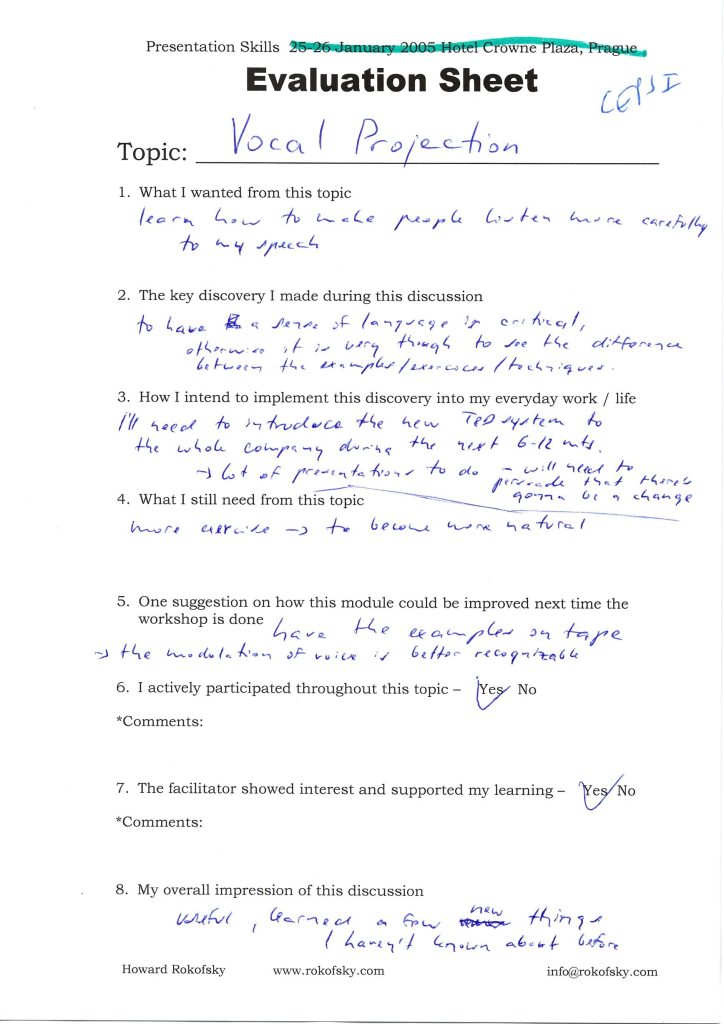 Presentation Skills 25-26 January 2005 Hotel Crowne Plaza, Prague
Evaluation Sheet
Topic: Vocal Projection
1. What I wanted from this topic
learn how to make people listen more carefully
to my speech
2. The key discovery I made during this discussion
to have a sense of language is critical,
otherwise it is very though to see the difference
between the examples/exercises/techniques.
3. How I intend to implement this discovery into my everyday work / life
I'll need to introduce the new TED system to
the whole company during the next 6-12 mts.
→ lot of presentations to do – will need to
persuade that there's
gonna be a change
4. What I still need from this topic
more exercise → to become more natural
5. One suggestion on how this module could be improved next time the
workshop is done have the examples on tape
→ the modulation of voice is better recognizable
6. I actively participated throughout this topic – Yes No
*Comments:
7. The facilitator showed interest and supported my learning – Yes No
*Comments:
8. My overall impression of this discussion
useful, learned a few new things
I haven't known about before
Howard Rokofsky www.rokofsky.com info@rokofsky.com